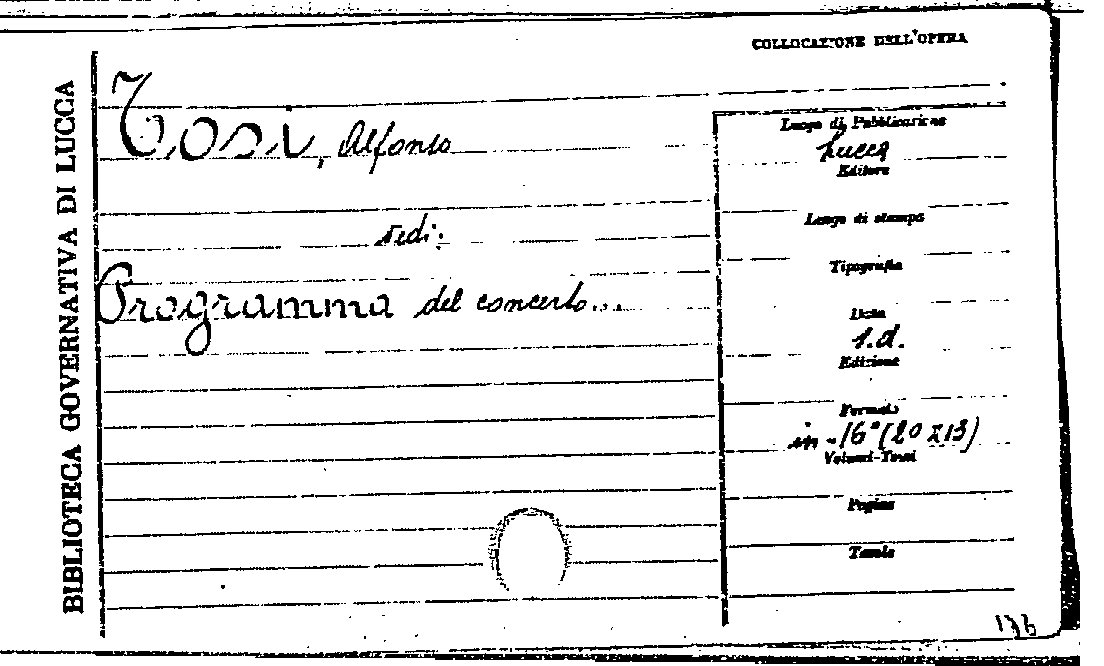 COLLOCAZIONE DELL'OPERA
BIBLIOTECA GOVERNATIVA DI LUCCA
Tosi, Alfonso
vedi:
Programma del concerto...
Luogo di Pubblicazione
Lucca
Editore
Luogo di stampa
Tipografia
Data
s.d.
Edizione
Formato
in-16° (20x13)
Volumi-Tomi
Pagine
Tavole